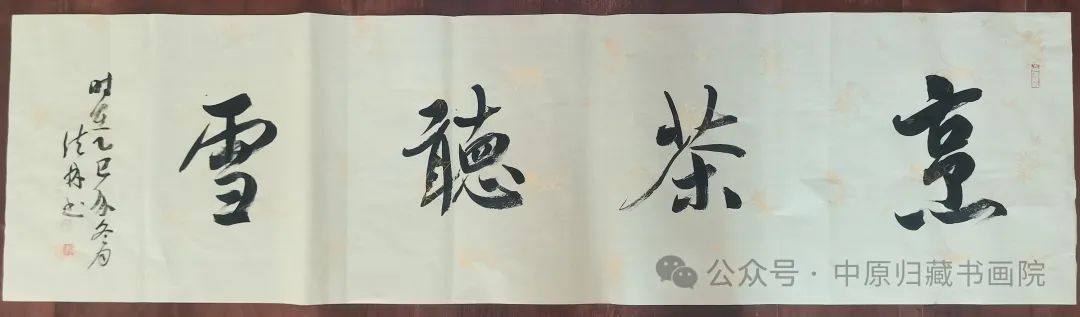 烹茶聽雪
时在乙巳年冬月
法林书
公众号·中原归藏书画院